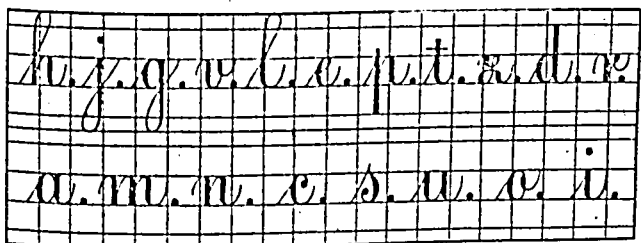 h.j.g.v.l.e.p.t.z.d.r.
a.m.n.c.s.u.o.i.